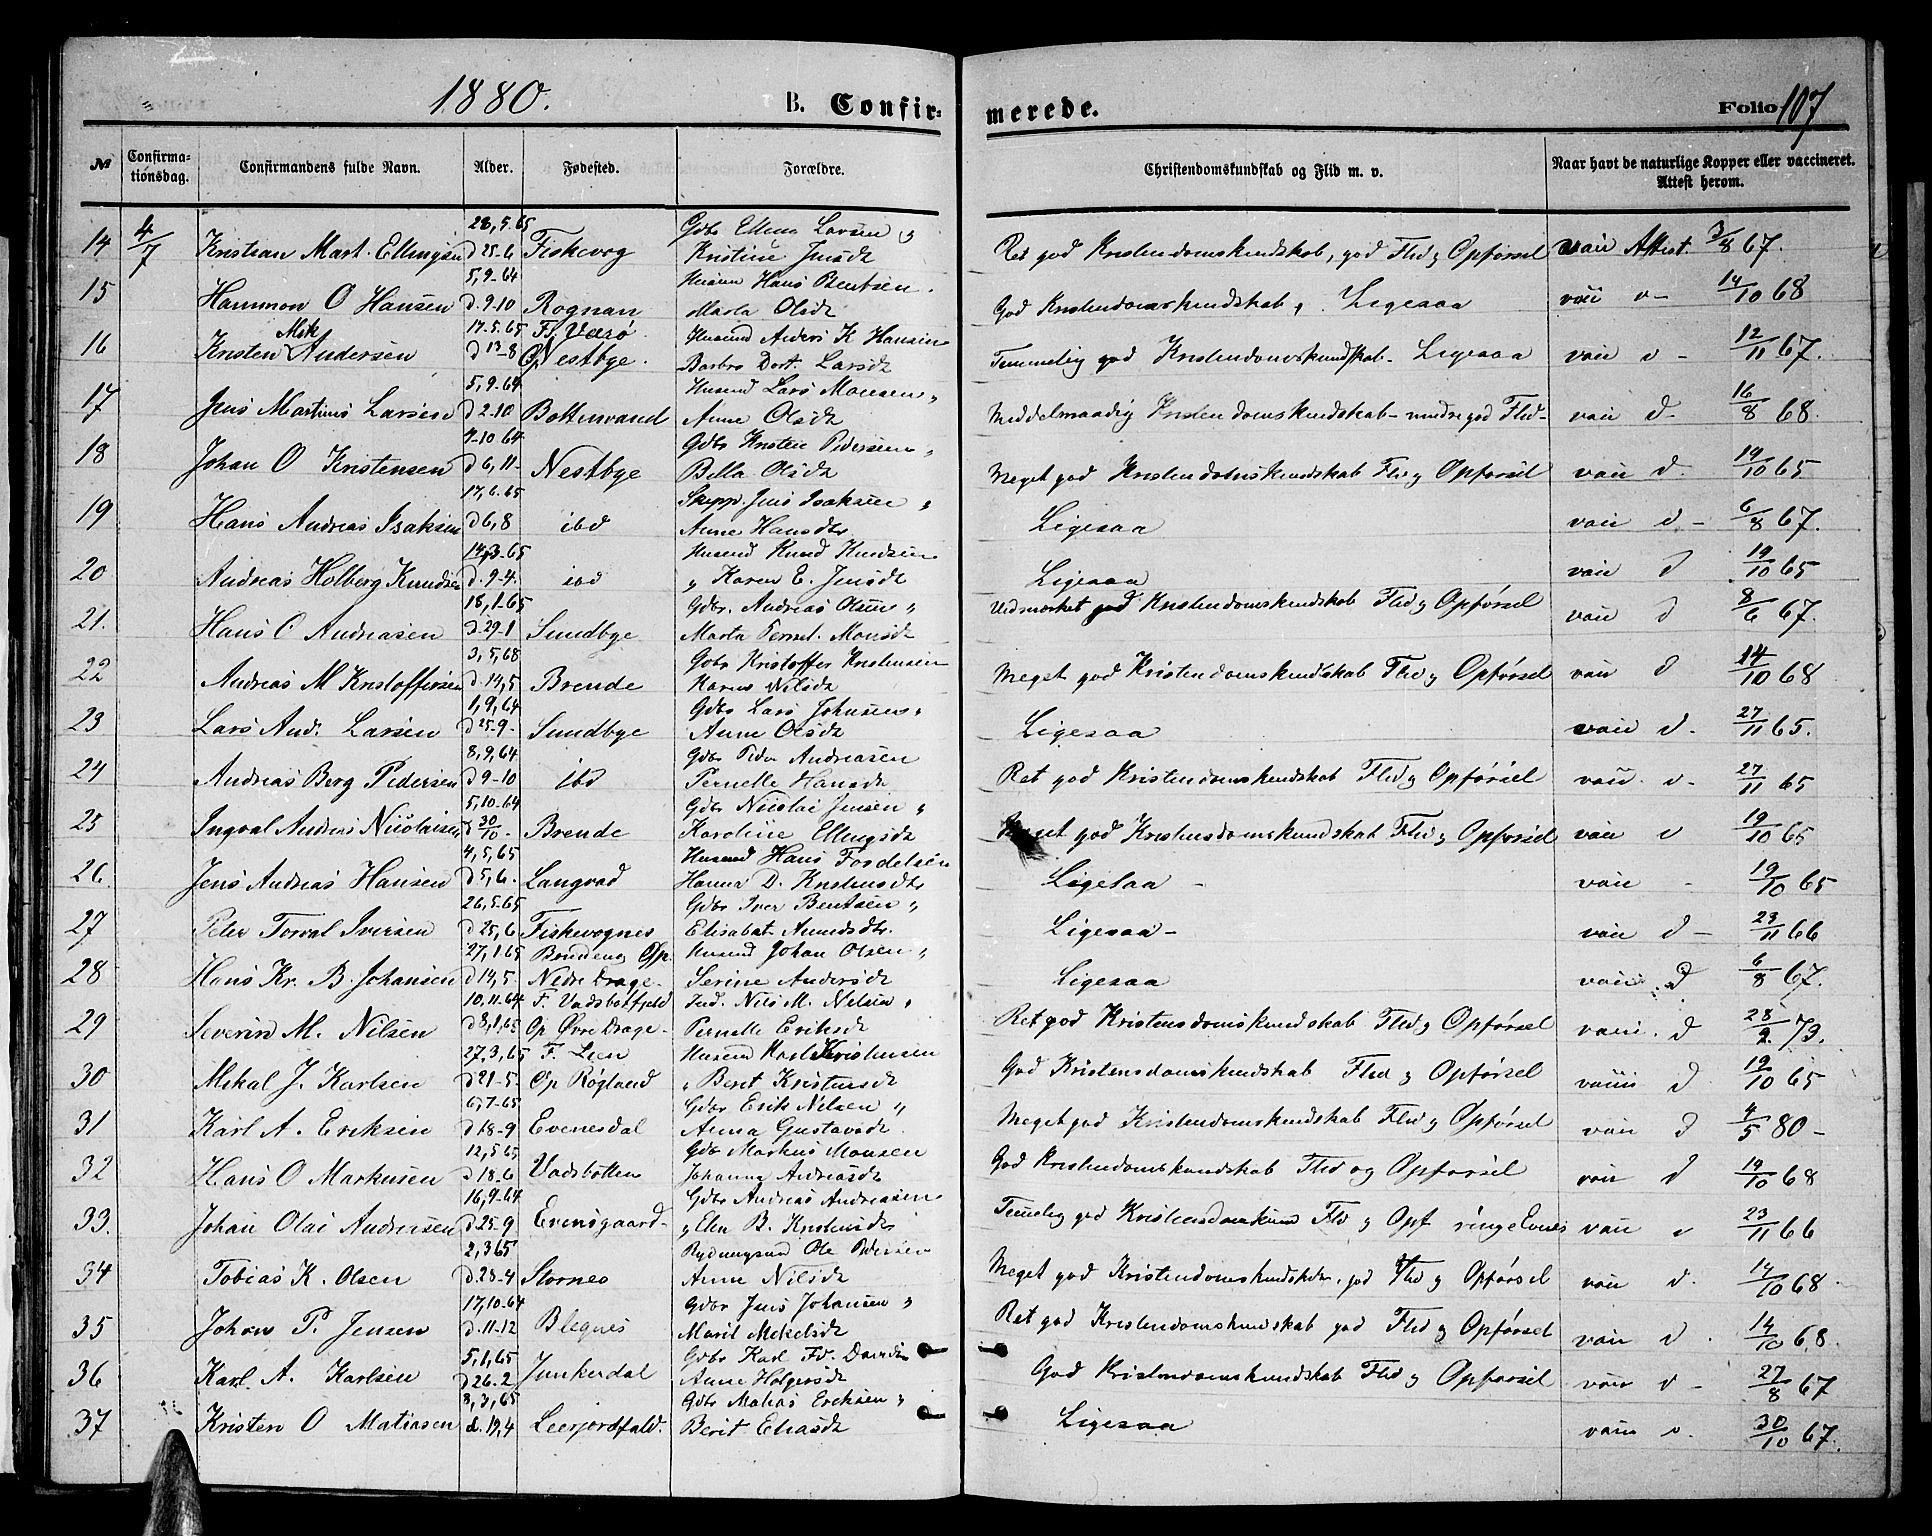 1880. B. Confirmerede. Folio 107
№ Confirmationsdag. Confirmandens fulde Navn. Alder. Fødested. Forældre. Christendomskundskab og Flid m. v. Naar havt de naturlige Kopper eller vaccineret. Attest herom.
28,5.65 Gdbr Elling Larsen
14 4/7 Kristian Mart. Ellingsen d 25-6 Fiskevog Kristine Jensdt Ret god Kristendomskundskab, god Flid og Opførsel Attest. 3/8 67.
5,9-64 Hans Bentsen
15 Hammon O Hansen d. 9-10 Rognan Marta Olsdt God Kristendomskundskab, Ligesaa 14/10 68
17.5.65 F. Værø Husmd Anders K Hansen
16 Kristen Mik Andersen d 13-8 Op Nestbye. Barbro Dort. Larsdt Temmelig god Kristendomskundskab- Ligesaa 12/11 67.
5,9-64 Husmd Lars Monsen
17 Jens Martinus Larsen d 2-10 Bottenvand Anne Olsdt Meddelmaadig Kristendomskundskab- mindre god Flid- d- 16/8 68.
4-10 64 Gdbr Kristen Pedersen
18 Johan O Kristensen d 6,11- Nestbye Bella Olsdt Meget god Kristendomskundskab Flid og Opførsel d. 14/10 65
17,6.65 Skipp. Jens Isaksen
19 Hans Andreas Isaksen d 6,8 ibd Anne Hansdtr Ligesaa d- 6/8 67.
14,3-65 Husmd Knud Knudsen
20 Andreas Holberg Knudsen d. 9-4. ibd " Karen E. Jensdt Ligesaa d 19/10 65
18,1-65 Gdbr. Andreas Olsen "
21. Hans O Andreasen d 29-1 Sundbye Marta Pernel. Monsdt Udmærket god Kristendomskundskab Flid og Opførsel d 8/6 67.
3,5,68 Gdbr Kristoffer Kristensen
22 Andreas M Kristoffersen d. 14,5 Brende Karen Nilsdt Meget god Kristendomskundskab Flid og Opførsel d 14/10 68
1,9,64 Gdbr Lars Johnsen
23 Lars And. Larsen d 25-9- Sundbye Anne Olsdt Ligesaa d. 27/11 65.
8,9,64 Gdbr Peder Andreasen
24 Andreas Berg Pedersen d 9-10 ibd Pernelle Hansdt Ret god Kristendomskundskab Flid og Opførsel d- 27/11 65
5,10-64 Gdbr Nicolai Jensen "
25 Ingval Andreas Nicolaisen d 30/10. Brende Karoline Ellingsdt Meget god Kristensdomskundskab Flid og Opførsel d 19/10 65
4,5,65 Husmd Hans Fordelsen
26. Jens Andreas Hansen d 5,6. Langvad Hanna D. Kristensdtr Ligesaa - 19/10 65
26,5-65 Gdbr Iver Bentsen "
27 Peter Torval Iversen d 25,6 Fiskvognes Elisabet Amundsdtr. Ligesaa- d- 23/11 66
27,1.65 Husmd Johan Olsen "
28 Hans Kr. B. Johansen d 14,5. Nedre Drage- Serine Andersdt Ligesaa d 6/8 67.
10,11-64 F. Vadsbotfjeld Ind. Nils M. Nelsen "
29 Severin M. Nilsen d 8,1,65 Op Øvre Drage- Pernelle Eriksdt Ret god Kristensdomskundskab Flid og Opførsel d 28/2. 73.
27,3,65 F. Lien Husmd Karl Kristensen
30 Mikal J. Karlsen d 21-5. Op Røgland " Berit Kristensdt God Kristensdomskundskab Flid og Opførsel d 19/10 65
6,7-65 Gdbr Erik Nelsen "
31 Karl A. Eriksen d 18-9 Evenesdal Anna Gustavsdt. Meget god Kristendomskundskab Flid og Opførsel d 4/5 80-
12,5 65 Gdbr Markus Monsen
32 Hans O Markusen d 18-6 Vadsbotten Johanna Andreasdt God Kristendomskundskab Flid og Opførsel d 19/10 68
16,9-64 Gdbr Andreas Andreasen
33. Johan Olai Andersen d 25-9 Evensgaard- " Elen B. Kristensdtr Temelig god Kristensdomskund Flid og Opf ringe Evner 23/11 66
2,3 65 Rydningsmd Ole Pedersen
34 Tobias K. Olsen d. 28-4 Stornes Anne Nilsdt Meget god Kristendomskundskab, god Flid og Opførsel d. 14/10 68.
17,10-64 Gdbr Jens Johansen "
35 Johan P. Jensen d. 11-12 Blegnes Marit Mekelsdt Ret god Kristendomskundskab god Flid og Opførsel d. 14/10 68.
5,1,65 Gdbr Karl Fd.
36 Karl A. Karlsen d 26.2 Junkerdal Anne Holgersdt God Kristendomskundskab Flid og Opførsel d- 27/8 67
8,3,65 Gdbr Matias Ericksen "
37 Kristen O Matiasen d. 19,4 Leerjordfald. Berit Eliasdt Ligesaa d. 30/10 67.